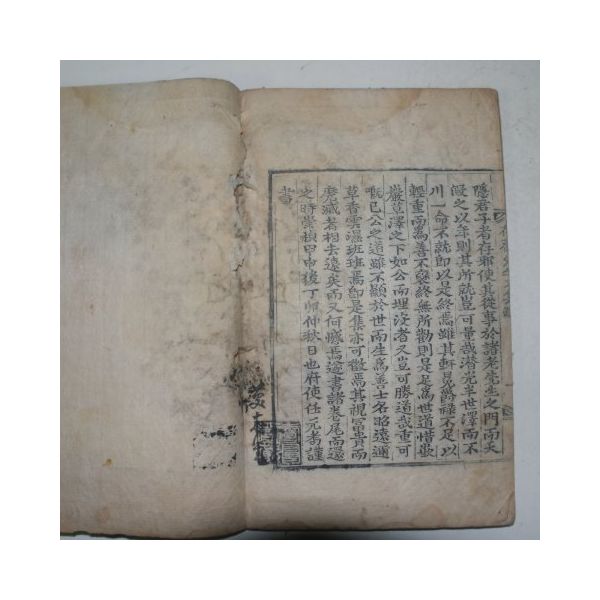 隱君子者存邪使其從事於諸老先生之門而天
假之以年則其所就豈可量哉潜光半世澤而不
川一命不就即以是終焉雖其軒冕爵祿不足以
輕重而爲善不褎終無所勸則是足爲世道惜歟
巖草澤之下如公而埋沒者又豈可勝道哉重可
嘅已公之道雖不顯於世而生爲善士名昭遠邇
草香雲濕班班焉即是集亦可徵焉其視富貴而
磨滅者相去遠矣而又何憾焉遂書諸卷尾而還
之時崇禎甲申後丁卯仲秋日也府使任元耈謹
書